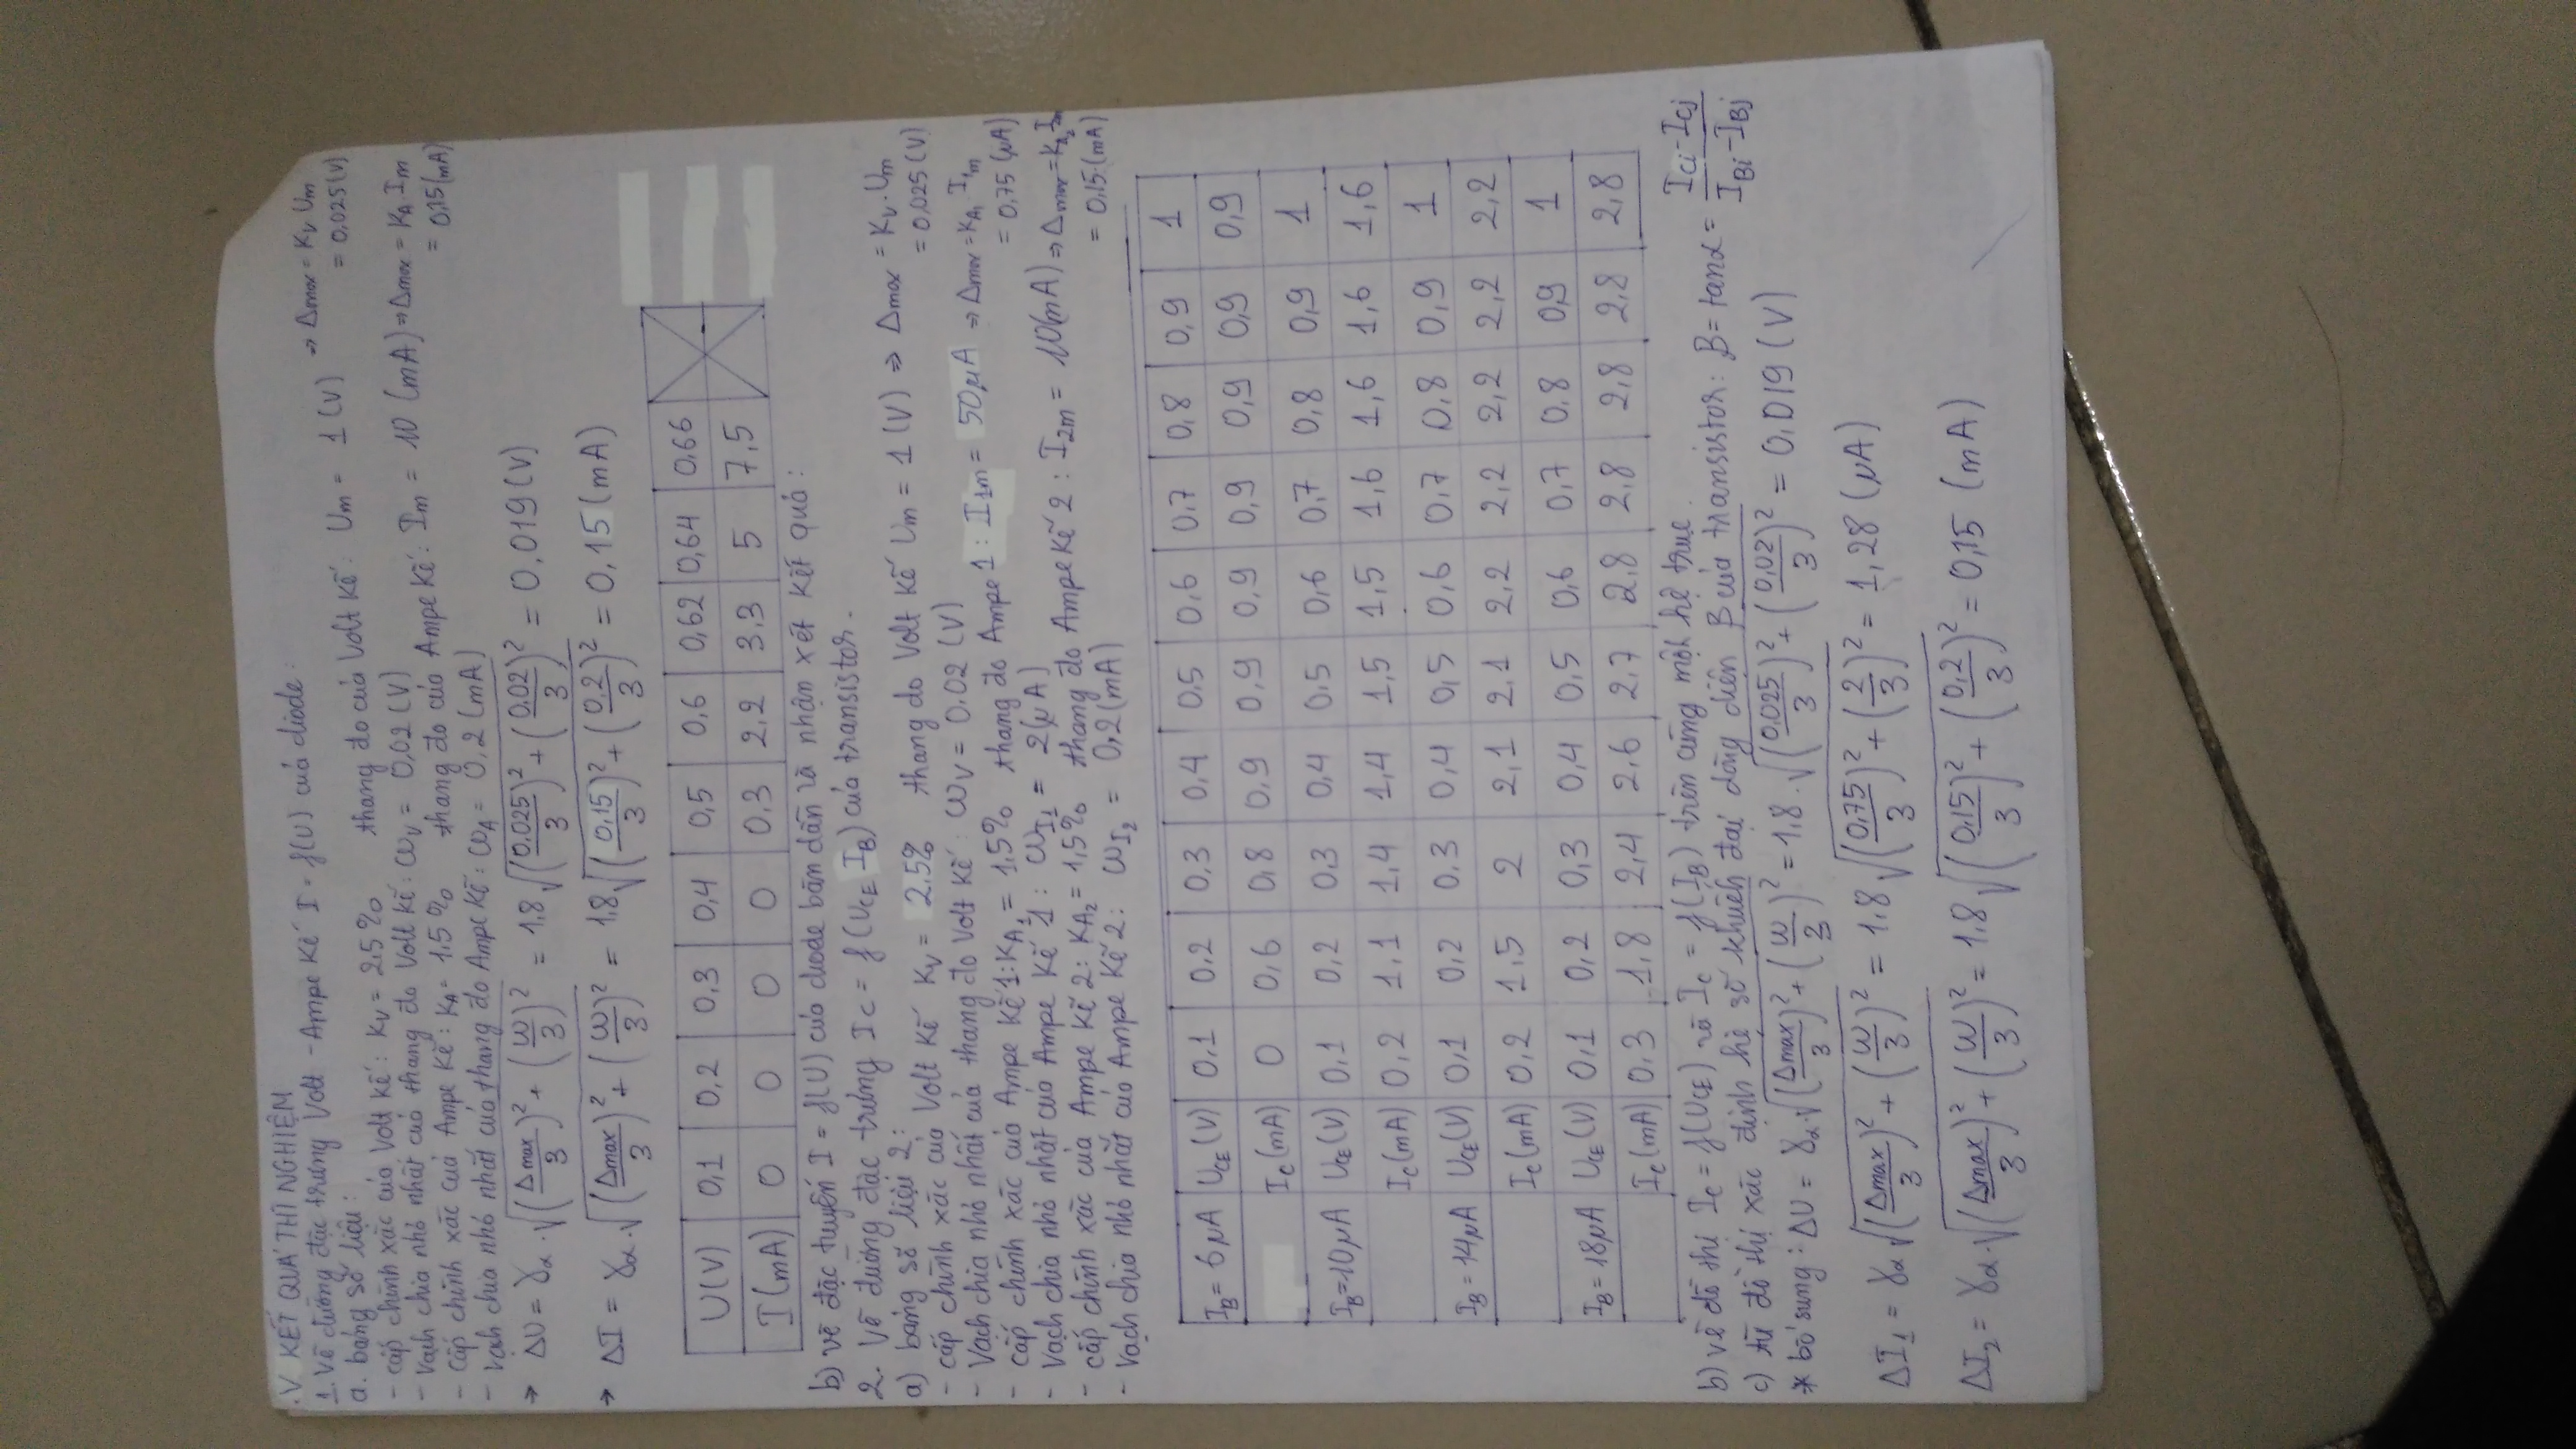 V. KẾT QUẢ THÍ NGHIỆM
1. Vẽ đường đặc trưng Volt - Ampe Kế I = f(U) của diode:
a. bảng số liệu:
- cấp chính xác của Volt kế: Kv = 2,5% thang đo của Volt kế: Um = 1 (V) => Δmax = Kv Um = 0,025 (V)
- Vạch chia nhỏ nhất của thang đo Volt kế: ωv = 0,02 (V)
- Cấp chính xác của Ampe Kế: KA = 1,5% thang đo của Ampe Kế: Im = 10 (mA) => Δmax = KA. Im = 0,15 (mA)
- Vạch chia nhỏ nhất của thang đo Ampe Kế: ωA = 0,2 (mA)
→ ΔU = γα . √((Δmax/3)² + (ω/3)²) = 1,8 √((0,025/3)² + (0,02/3)²) = 0,019 (V)
→ ΔI = γα . √((Δmax/3)² + (ω/3)²) = 1,8 √((0,15/3)² + (0,2/3)²) = 0,15 (mA)
U(V) 0,1 0,2 0,3 0,4 0,5 0,6 0,62 0,64 0,66
I(mA) 0 0 0 0 0,3 2,2 3,3 5 7,5
b) vẽ đặc tuyến I = f(U) của diode bán dẫn và nhận xét kết quả:
2. Vẽ đường đặc trưng IC = f(UCE IB) của transistor.
a) bảng số liệu 2:
- cấp chính xác của Volt kế Kv = 2.5% thang đo Volt kế Um = 1 (V) => Δmax = Kv. Um = 0,025 (V)
- Vạch chia nhỏ nhất của thang đo Volt kế: ωv = 0.02 (V)
- cấp chính xác của Ampe kế 1: KA1 = 1,5% thang đo Ampe 1: I1m = 50μA => Δmax = KA1 I1m = 0,75 (μA)
- Vạch chia nhỏ nhất của Ampe Kế 1: ωI1 = 2(μA)
- cấp chính xác của Ampe kế 2: KA2 = 1,5% thang đo Ampe Kế 2: I2m = 10(mA) => Δmax = KA2 I2m = 0,15 (mA)
- Vạch chia nhỏ nhất của Ampe Kế 2: ωI2 = 0,2(mA)
IB = 6μA UCE(V) 0,1 0,2 0,3 0,4 0,5 0,6 0,7 0,8 0,9 1
IC(mA) 0 0,6 0,8 0,9 0,9 0,9 0,9 0,9 0,9 0,9
IB = 10μA UCE(V) 0,1 0,2 0,3 0,4 0,5 0,6 0,7 0,8 0,9 1
IC(mA) 0,2 1,1 1,4 1,4 1,5 1,5 1,6 1,6 1,6 1,6
IB = 14μA UCE(V) 0,1 0,2 0,3 0,4 0,5 0,6 0,7 0,8 0,9 1
IC(mA) 0,2 1,5 2 2,1 2,1 2,2 2,2 2,2 2,2 2,2
IB = 18μA UCE(V) 0,1 0,2 0,3 0,4 0,5 0,6 0,7 0,8 0,9 1
IC(mA) 0,3 1,8 2,4 2,6 2,7 2,8 2,8 2,8 2,8 2,8
b) vẽ đồ thị IC = f(UCE) và IC = f(IB) trên cùng một hệ trục.
c) từ đồ thị xác định hệ số khuếch đại dòng điện β của transistor: β = tanα = (ICi - ICj)/(IBi - IBj)
* bổ sung: ΔU = γα . √((Δmax/3)² + (ω/3)²) = 1,8 . √((0,025/3)² + (0,02/3)²) = 0,019 (V)
ΔI1 = γα √((Δmax/3)² + (ω/3)²) = 1.8 √((0,75/3)² + (2/3)²) = 1,28 (μA)
ΔI2 = γα . √((Δmax/3)² + (ω/3)²) = 1.8 √((0,15/3)² + (0,2/3)²) = 0,15 (mA)